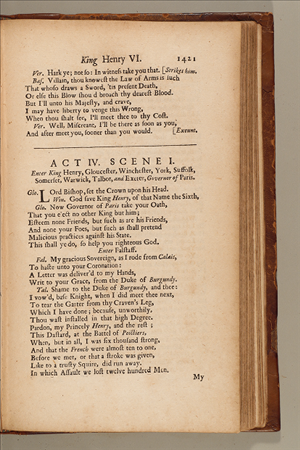 King Henry VI. 1421
Ver. Hark ye; not so: In witness take you that. [Strikes him.
Bas. Villain, thou knowest the Law of Arms is such
That whoso draws a Sword, 'tis present Death,
Or else this Blow shou'd broach thy dearest Blood.
But I'll unto his Majesty, and crave,
I may have liberty to venge this Wrong,
When thou shalt see, I'll meet thee to thy Cost.
Ver. Well, Miscreant, I'll be there as soon as you,
And after meet you, sooner than you would. [Exeunt.
ACT IV. SCENE I.
Enter King Henry, Gloucester, Winchester, York, Suffolk,
Somerset, Warwick, Talbot, and Exeter, Governor of Paris.
Glo. Lord Bishop, set the Crown upon his Head.
Win. God save King Henry, of that Name the Sixth,
Glo. Now Governor of Paris take your Oath,
That you elect no other King but him;
Esteem none Friends, but such as are his Friends,
And none your Foes, but such as shall pretend
Malicious practices against his State.
This shall ye do, so help you righteous God.
Enter Falstaff.
Fal. My gracious Sovereign, as I rode from Calais,
To haste unto your Coronation:
A Letter was deliver'd to my Hands,
Writ to your Grace, from the Duke of Burgundy.
Tal. Shame to the Duke of Burgundy, and thee:
I vow'd, base Knight, when I did meet thee next,
To tear the Garter from thy Craven's Leg,
Which I have done; because, unworthily,
Thou wast installed in that high Degree.
Pardon, my Princely Henry, and the rest;
This Dastard, at the Battel of Poictiers,
When, but in all, I was six thousand strong,
And that the French were almost ten to one.
Before we met, or that a stroke was given,
Like to a trusty Squire, did run away.
In which Assault we lost twelve hundred Men.
My